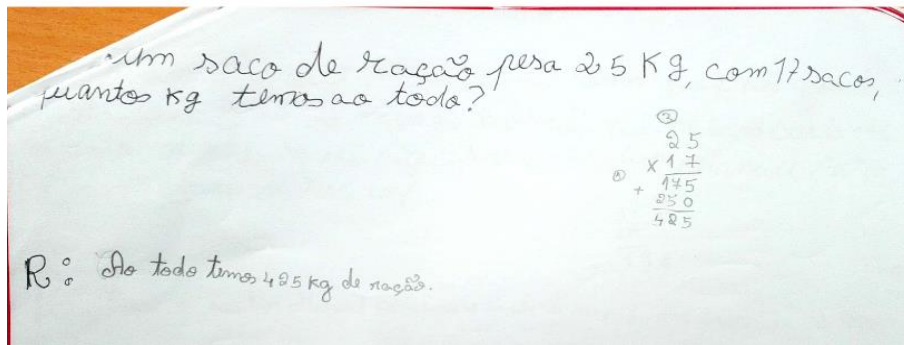 Um saco de ração pesa 25 Kg, com 17 sacos,
quantos Kg temos ao todo?
2
25
x 17
175
+ 250
425
R: Ao todo temos 425 kg de ração.